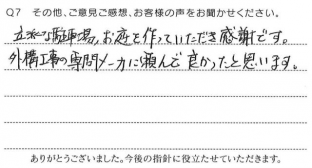 Q7 その他、ご意見ご感想、お客様の声をお聞かせください。
立派な駐車場、お庭を作っていただき感謝です。
外構工事の専門メーカーに頼んで良かったと思います。
ありがとうございました。今後の指針に役立たせていただきます。